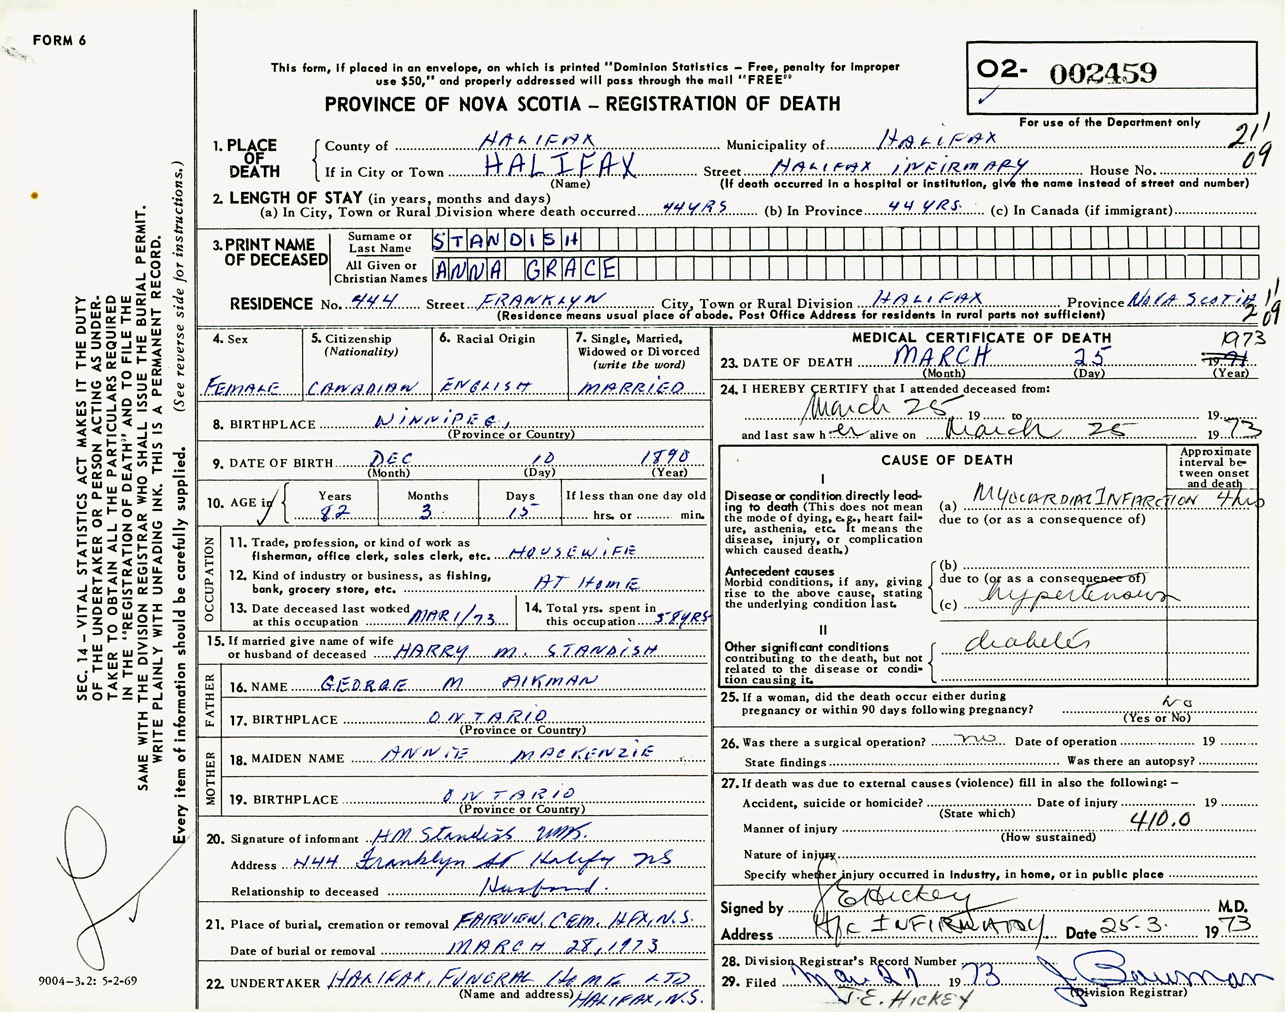 FORM 6
This form, if placed in an envelope, on which is printed "Dominion Statistics – Free, penalty for improper
use $50," and properly addressed will pass through the mail "FREE"
PROVINCE OF NOVA SCOTIA – REGISTRATION OF DEATH
02- 002459
For use of the Department only
1. PLACE OF DEATH
County of HALIFAX Municipality of HALIFAX 211
If in City or Town HALIFAX Street HALIFAX INFIRMARY House No. 09
(Name) (If death occurred in a hospital or institution, give the name instead of street and number)
2. LENGTH OF STAY (in years, months and days)
(a) In City, Town or Rural Division where death occurred 44 YRS (b) In Province 44 YRS. (c) In Canada (if immigrant)
3. PRINT NAME OF DECEASED
Surname or Last Name STANDISH
All Given or Christian Names ANNA GRACE
RESIDENCE No. 444 Street FRANKLYN City, Town or Rural Division HALIFAX Province NOVA SCOTIA 211
(Residence means usual place of abode. Post Office Address for residents in rural parts not sufficient) 09
4. Sex
FEMALE
5. Citizenship
(Nationality)
CANADIAN
6. Racial Origin
ENGLISH
7. Single, Married,
Widowed or Divorced
(write the word)
MARRIED
8. BIRTHPLACE WINNIPEG,
(Province or Country)
9. DATE OF BIRTH DEC 10 1890
(Month) (Day) (Year)
10. AGE in
Years Months Days If less than one day old
82 3 15 hrs. or min.
OCCUPATION
11. Trade, profession, or kind of work as
fisherman, office clerk, sales clerk, etc. HOUSEWIFE
12. Kind of industry or business, as fishing,
bank, grocery store, etc. AT HOME
13. Date deceased last worked
at this occupation MAR 1/73
14. Total yrs. spent in
this occupation 58 YRS
15. If married give name of wife
or husband of deceased HARRY M. STANDISH
FATHER
16. NAME GEORGE M AIKMAN
17. BIRTHPLACE ONTARIO
(Province or Country)
MOTHER
18. MAIDEN NAME ANNIE MACKENZIE
19. BIRTHPLACE ONTARIO
(Province or Country)
20. Signature of informant HM Standish
Address 444 Franklyn St Halifx NS
Relationship to deceased Husband.
21. Place of burial, cremation or removal FAIRVIEW CEM. HFX, N.S.
Date of burial or removal MARCH 28, 1973
22. UNDERTAKER HALIFAX FUNERAL HOME LTD
(Name and address) HALIFAX, N.S.
MEDICAL CERTIFICATE OF DEATH
1973
23. DATE OF DEATH MARCH 25 19
(Month) (Day) (Year)
24. I HEREBY CERTIFY that I attended deceased from:
March 25, 19 to 19
and last saw h er alive on March 25 1973
CAUSE OF DEATH
Approximate
interval be-
tween onset
and death
I
Disease or condition directly lead-
ing to death (This does not mean
the mode of dying, e.g., heart fail-
ure, asthenia, etc. It means the
disease, injury, or complication
which caused death.)
(a) MYOCARDIAL INFARCTION 4 hrs
due to (or as a consequence of)
Antecedent causes
Morbid conditions, if any, giving
rise to the above cause, stating
the underlying condition last.
(b)
due to (or as a consequence of)
(c) hypertension
II
Other significant conditions
contributing to the death, but not
related to the disease or condi-
tion causing it.
diabetes
25. If a woman, did the death occur either during
pregnancy or within 90 days following pregnancy? No
(Yes or No)
26. Was there a surgical operation? no Date of operation 19
State findings Was there an autopsy?
27. If death was due to external causes (violence) fill in also the following: –
Accident, suicide or homicide? Date of injury 19
(State which)
Manner of injury 410.0
(How sustained)
Nature of injury
Specify whether injury occurred in industry, in home, or in public place
Signed by J E Hickey M.D.
Address Hfx INFIRMARY Date 25-3. 1973
28. Division Registrar's Record Number
29. Filed Mar 27 1973 J. Bauman
(Division Registrar)
J. E. HICKEY
SEC. 14 – VITAL STATISTICS ACT MAKES IT THE DUTY
OF THE UNDERTAKER OR PERSON ACTING AS UNDER-
TAKER TO OBTAIN ALL THE PARTICULARS REQUIRED
IN THE "REGISTRATION OF DEATH" AND TO FILE THE
SAME WITH THE DIVISION REGISTRAR WHO SHALL ISSUE THE BURIAL PERMIT.
WRITE PLAINLY WITH UNFADING INK. THIS IS A PERMANENT RECORD.
Every item of information should be carefully supplied. (See reverse side for instructions.)
9004–3.2: 5-2-69